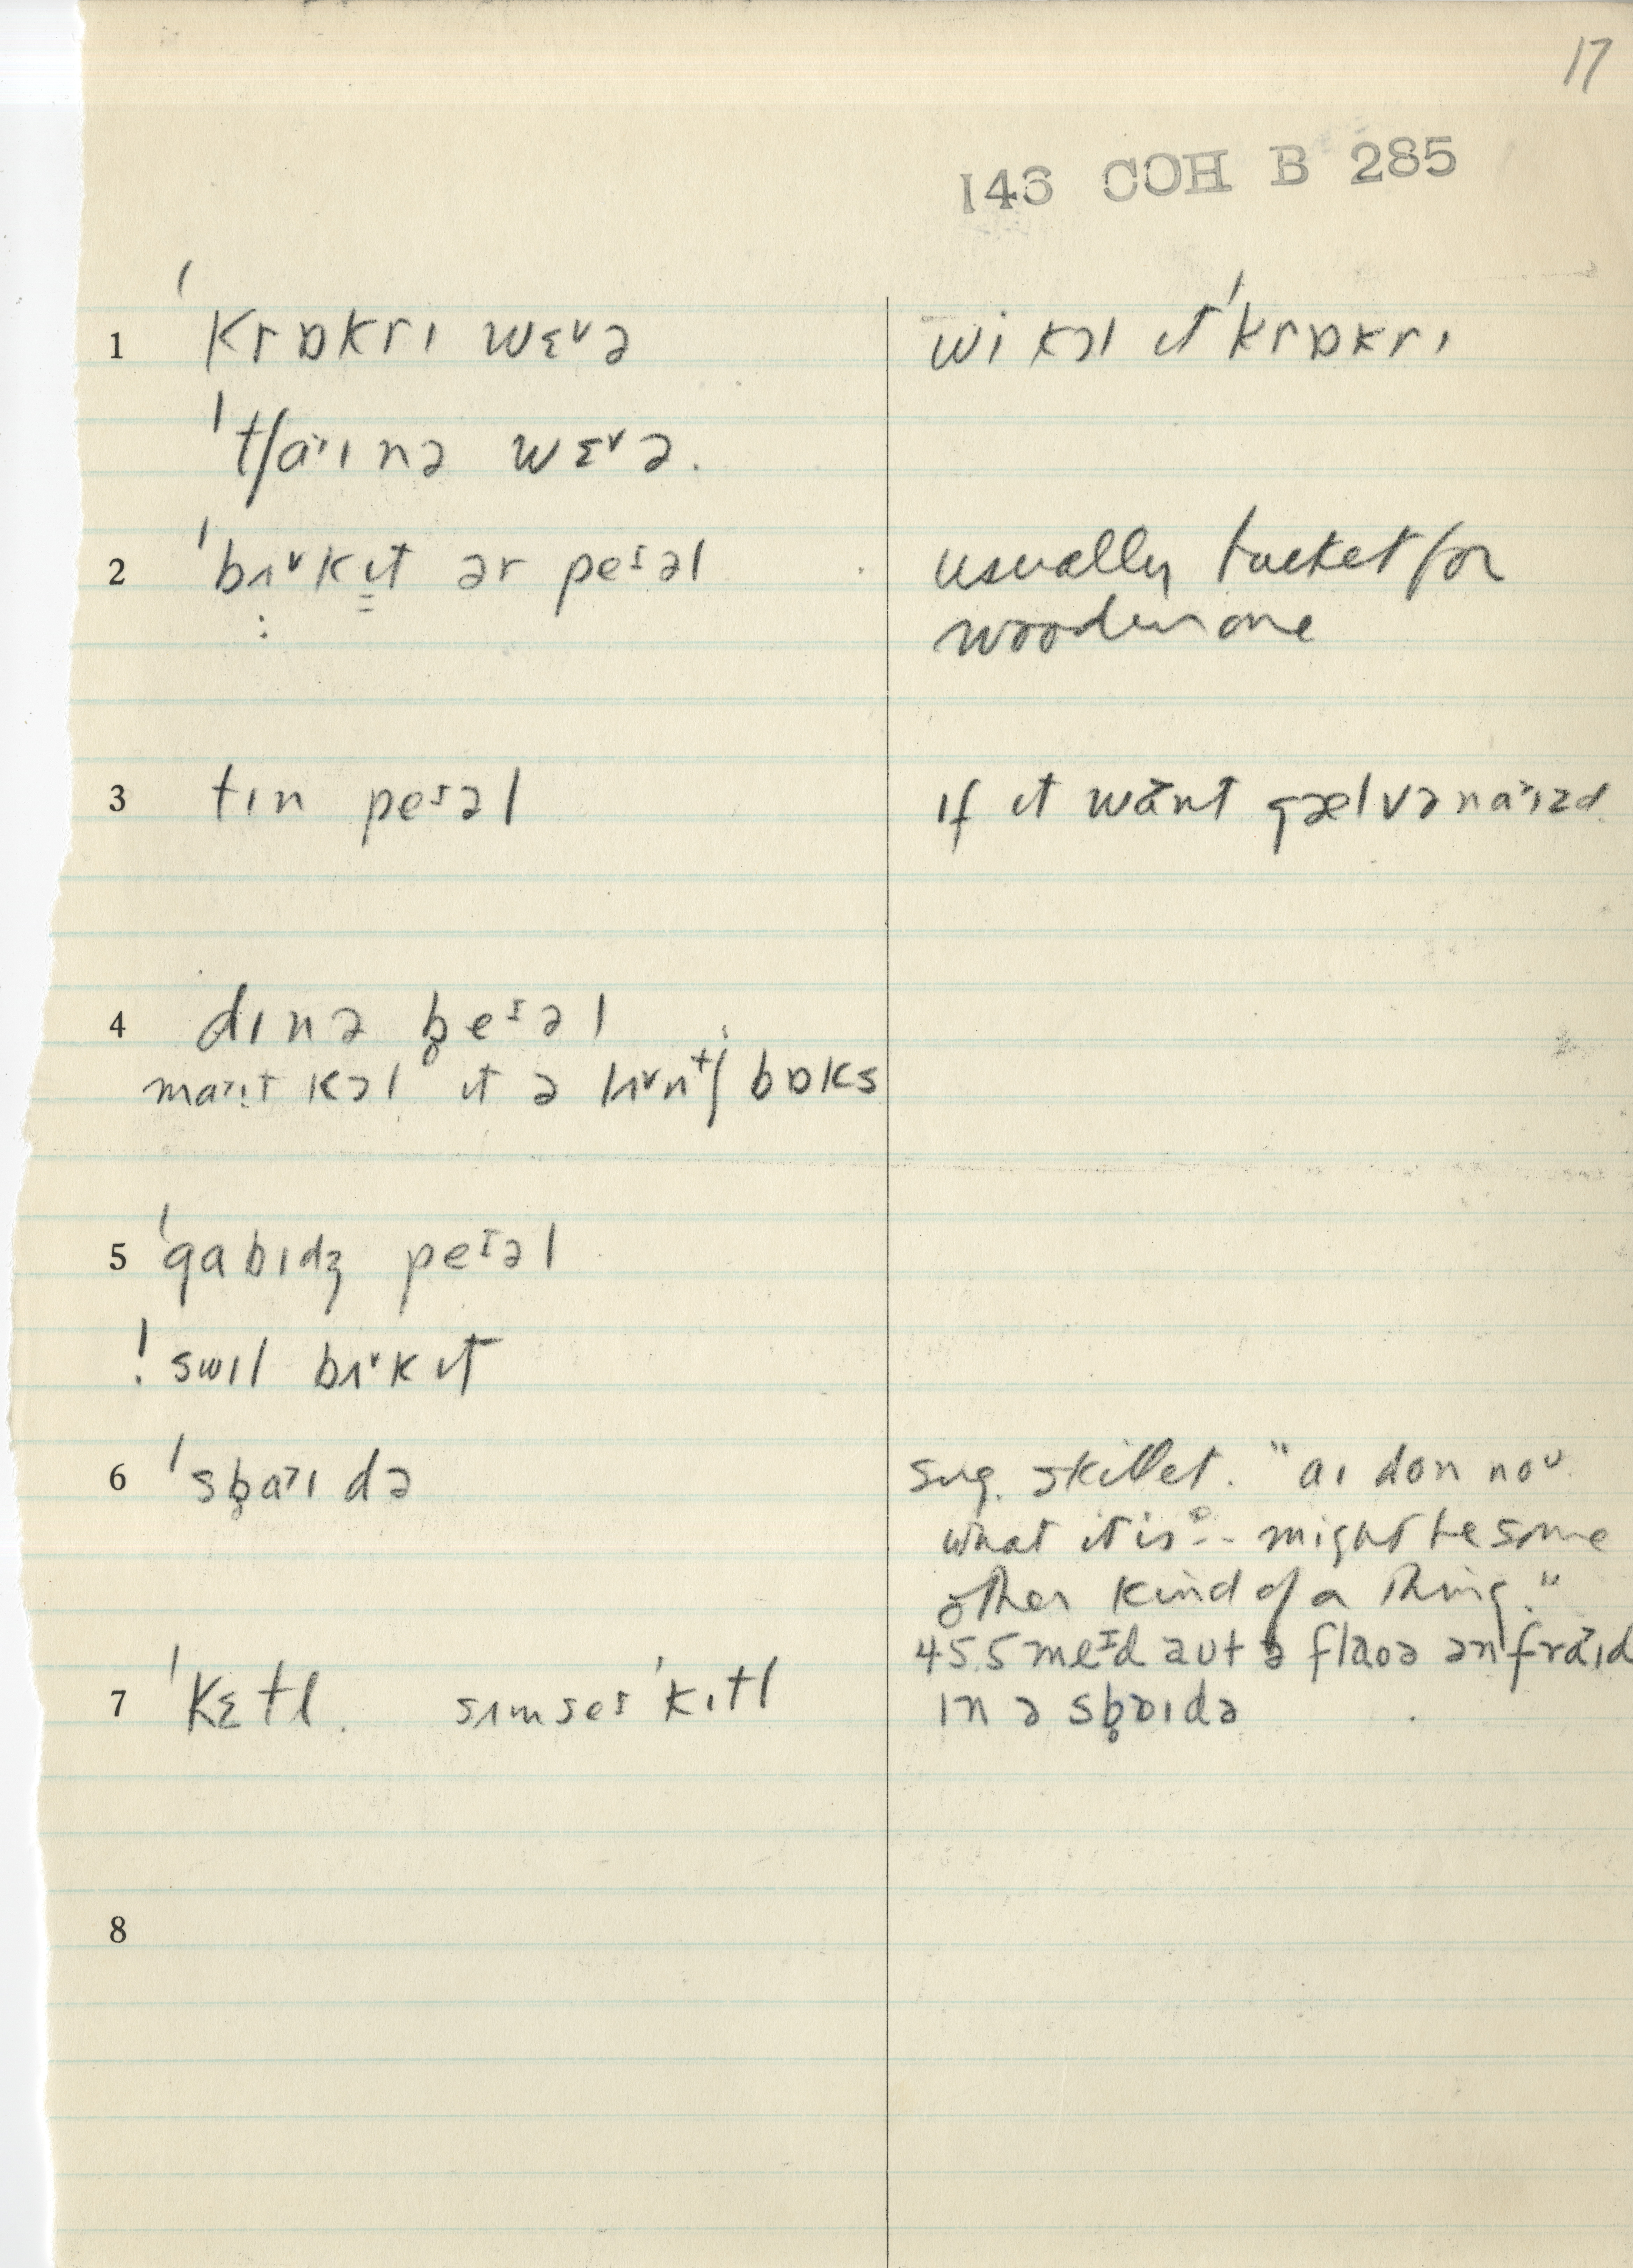 17
146 COH B 285
1 ˈkrɒkrɪ wɛ˅ə
wi kɔl ɪt ˈkrɒkrɪ
ˈtʃaɪnə wɛ˅ə.
2 ˈbʌ˅kɪt ər peᶦəl
usually bucket for
wooden one
3 tɪn peᶦəl
if ɪt want gælvənaɪzd
4 dɪnə b̥eᶦəl
maɪt kɔl ɪt ə lʌ˅ntʃ bɒks
5 ˈgabɪdʒ peᶦəl
! swɪl bʌ˅kɪt
6 ˈsb̥aɪdə
sug. skillet. "aɪ don noᶸ
what it is - - might be some
other kind of a thing."
7 ˈkɛtl. sʌmseɪ ˈkɪtl
45.5 meᶦd aut ə flaoə ən fraɪd
ɪn ə sb̥ɒɪdə
8